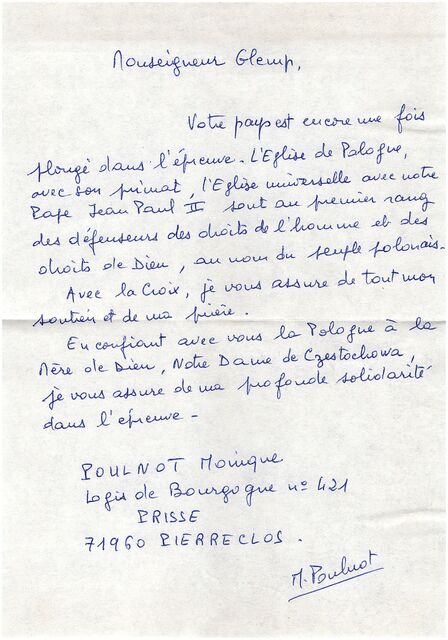 Monseigneur Glemp,
Votre pays est encore une fois
plongé dans l'épreuve. L'Eglise de Pologne,
avec son primat, l'Eglise universelle avec notre
Pape Jean Paul II sont au premier rang
des défenseurs des droits de l'homme et des
droits de Dieu, au nom du peuple polonais.
Avec la Croix, je vous assure de tout mon
soutien et de ma prière.
En confiant avec vous la Pologne à la
Mère de Dieu, Notre Dame de Czestochowa,
je vous assure de ma profonde solidarité
dans l'épreuve -
POULNOT Monique
Logis de Bourgogne n° 421
PRISSE
71960 PIERRECLOS.
M. Poulnot